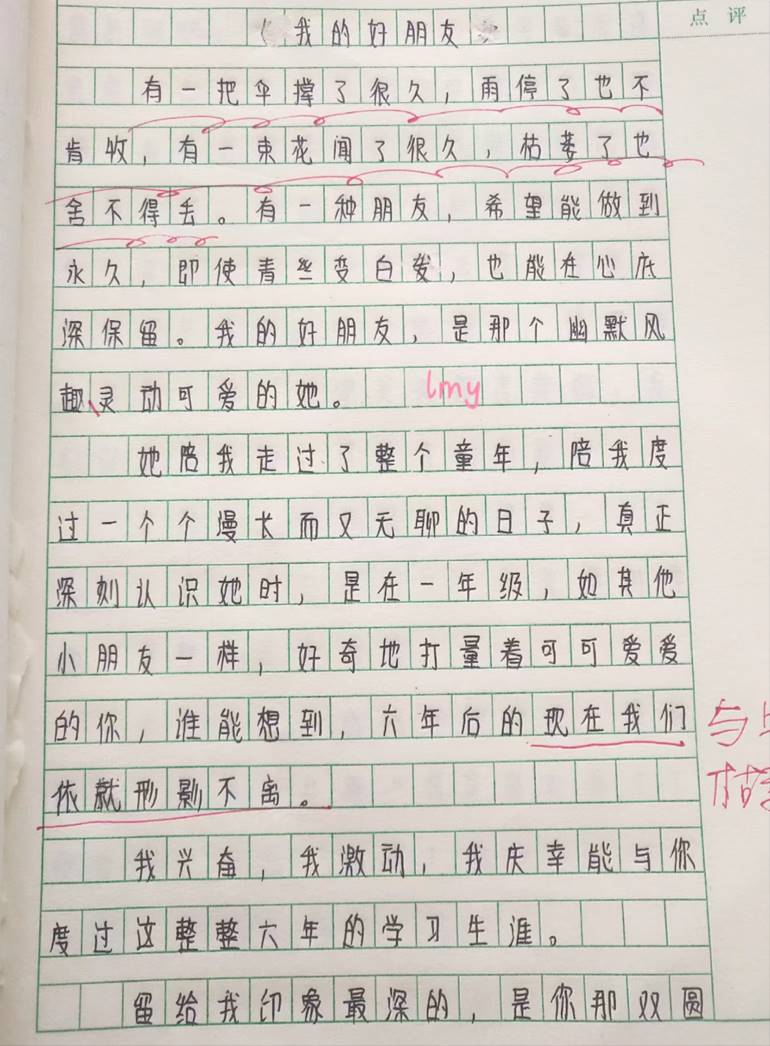 点评
《我的好朋友》
有一把伞撑了很久，雨停了也不
肯收，有一束花闻了很久，枯萎了也
舍不得丢。有一种朋友，希望能做到
永久，即使青丝变白发，也能在心底
深保留。我的好朋友，是那个幽默风
趣、灵动可爱的她。 lmy
她陪我走过了整个童年，陪我度
过一个个漫长而又无聊的日子，真正
深刻认识她时，是在一年级，如其他
小朋友一样，好奇地打量着可可爱爱
的你，谁能想到，六年后的现在我们 与
依就形影不离。
我兴奋，我激动，我庆幸能与你
度过这整整六年的学习生涯。
留给我印象最深的，是你那双圆